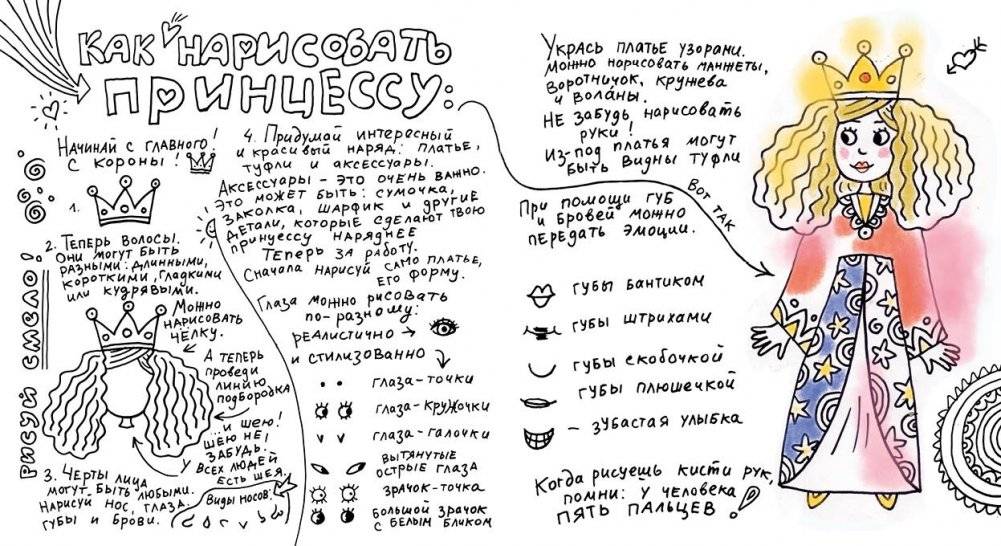 КАК НАРИСОВАТЬ
ПРИНЦЕССУ:
НАЧИНАЙ С ГЛАВНОГО!
С КОРОНЫ!
1.
2. ТЕПЕРЬ ВОЛОСЫ.
ОНИ МОГУТ БЫТЬ
РАЗНЫМИ: ДЛИННЫМИ,
КОРОТКИМИ, ГЛАДКИМИ
ИЛИ КУДРЯВЫМИ.
МОЖНО
НАРИСОВАТЬ
ЧЁЛКУ.
А ТЕПЕРЬ
ПРОВЕДИ
ЛИНИЮ
ПОДБОРОДКА
...И ШЕЮ!
ШЕЮ НЕ
ЗАБУДЬ.
У ВСЕХ ЛЮДЕЙ
ЕСТЬ ШЕЯ.
3. ЧЕРТЫ ЛИЦА
МОГУТ БЫТЬ ЛЮБЫМИ.
НАРИСУЙ НОС, ГЛАЗА,
ГУБЫ И БРОВИ.
ВИДЫ НОСОВ:
РИСУЙ СМЕЛО!
4. ПРИДУМАЙ ИНТЕРЕСНЫЙ
И КРАСИВЫЙ НАРЯД: ПЛАТЬЕ,
ТУФЛИ И АКСЕССУАРЫ.
АКСЕССУАРЫ - ЭТО ОЧЕНЬ ВАЖНО.
ЭТО МОЖЕТ БЫТЬ: СУМОЧКА,
ЗАКОЛКА, ШАРФИК И ДРУГИЕ
ДЕТАЛИ, КОТОРЫЕ СДЕЛАЮТ ТВОЮ
ПРИНЦЕССУ НАРЯДНЕЕ
ТЕПЕРЬ ЗА РАБОТУ.
СНАЧАЛА НАРИСУЙ САМО ПЛАТЬЕ,
ЕГО ФОРМУ.
ГЛАЗА МОЖНО РИСОВАТЬ
ПО-РАЗНОМУ:
РЕАЛИСТИЧНО
И СТИЛИЗОВАННО
ГЛАЗА-ТОЧКИ
ГЛАЗА-КРУЖОЧКИ
ГЛАЗА-ГАЛОЧКИ
ВЫТЯНУТЫЕ
ОСТРЫЕ ГЛАЗА
ЗРАЧОК-ТОЧКА
БОЛЬШОЙ ЗРАЧОК
С БЕЛЫМ БЛИКОМ
УКРАСЬ ПЛАТЬЕ УЗОРАМИ.
МОЖНО НАРИСОВАТЬ МАНЖЕТЫ,
ВОРОТНИЧОК, КРУЖЕВА
И ВОЛАНЫ.
НЕ ЗАБУДЬ, НАРИСОВАТЬ
РУКИ!
ИЗ-ПОД ПЛАТЬЯ МОГУТ
БЫТЬ ВИДНЫ ТУФЛИ
ВОТ ТАК
ПРИ ПОМОЩИ ГУБ
И БРОВЕЙ МОЖНО
ПЕРЕДАТЬ ЭМОЦИИ.
ГУБЫ БАНТИКОМ
ГУБЫ ШТРИХАМИ
ГУБЫ СКОБОЧКОЙ
ГУБЫ ПЛЮШЕЧКОЙ
- ЗУБАСТАЯ УЛЫБКА
КОГДА РИСУЕШЬ КИСТИ РУК,
ПОМНИ: У ЧЕЛОВЕКА
ПЯТЬ ПАЛЬЦЕВ!